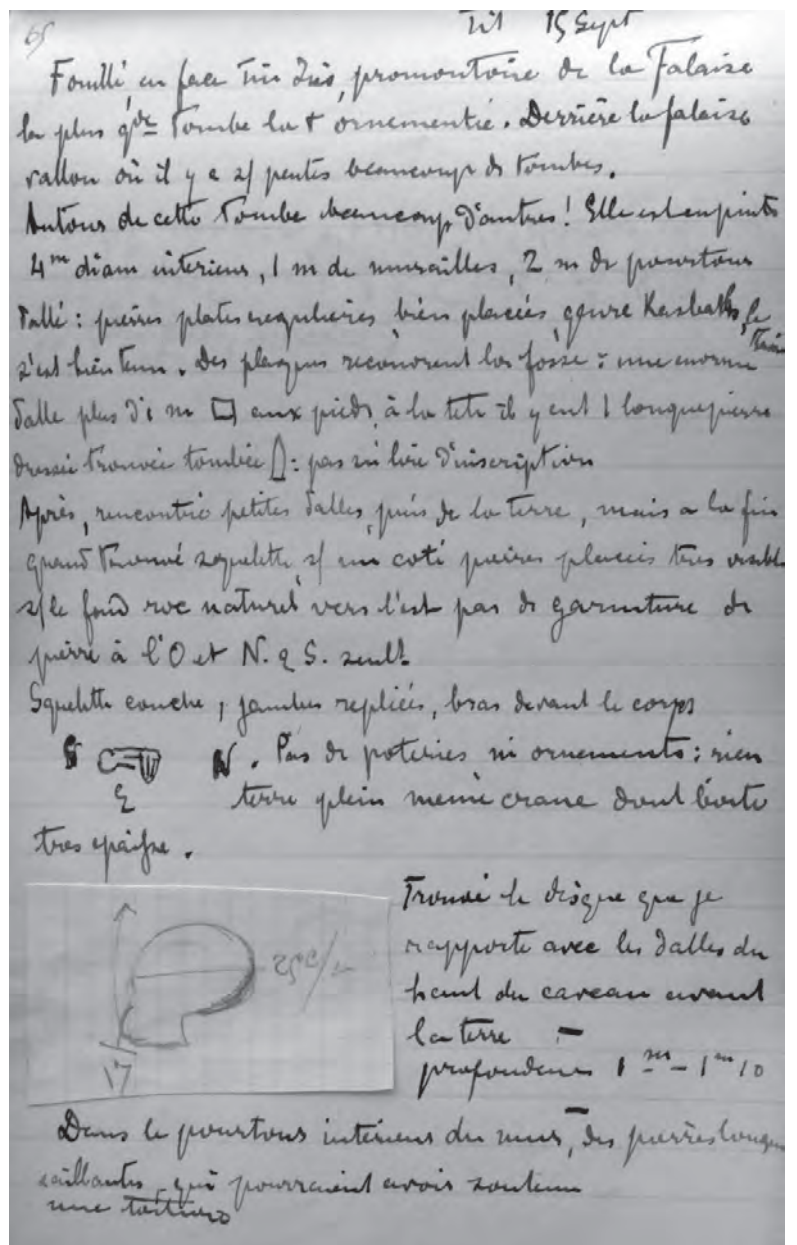 65
Tit 15 Sept
Fouillé en face Tin Diès, promontoire de la Falaise
la plus gde Tombe la + ornementée. Derrière la falaise
vallon où il y a s/ pentes beaucoup de Tombes.
Autour de cette Tombe beaucoup d'autres! Elle est en pints
4m diam interieur, 1 m de murailles, 2 m de pourtour
Dallé: pierres plates régulieres bien placées genre Kasbah, le tran
s'est bien tenu. Des plaques recouvrent la fosse: une enorme
dalle plus d'1 m ▭ aux pieds, à la tete il y eut 1 longue pierre
dressée trouvée tombée : pas su lire d'inscription
Après, rencontré petites dalles, puis de la terre, mais a la fin
quand trouvé squelette s/ un coté pierres placées tres visibles
s/ le fond roc naturel vers l'est pas de garniture de
pierre à l'O et N. & S. seult
Squelette couché, jambes repliées, bras devant le corps
S N. Pas de poteries ni ornements: rien
E terre plein meme crane dont boite
tres epaisse.
Trouvé le disque que je
rapporte avec les dalles du
haut du caveau avant
la terre –
profondeur 1 m – 1 m 10
25 c/m
17
Dans le pourtour intérieur du mur, des pierres longues
saillantes, qui pourraient avoir soutenu
une toiture